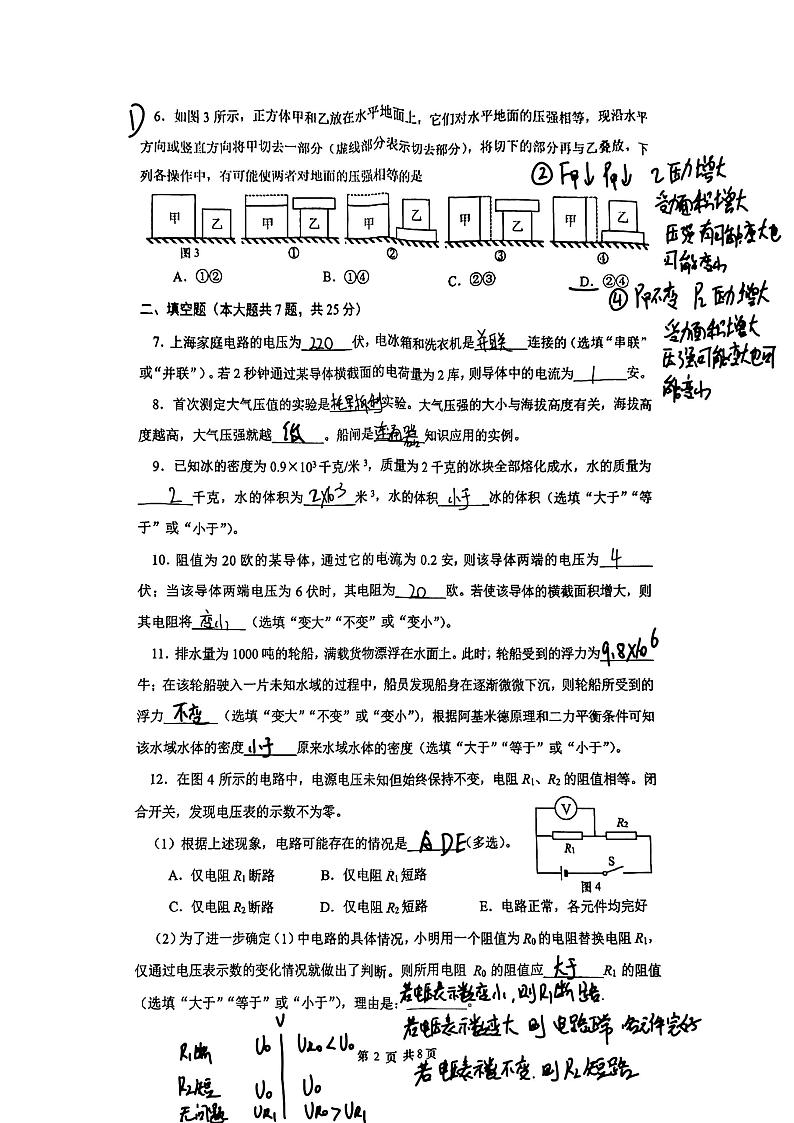 D 6. 如图 3 所示，正方体甲和乙放在水平地面上，它们对水平地面的压强相等，现沿水平
方向或竖直方向将甲切去一部分（虚线部分表示切去部分），将切下的部分再与乙叠放，下
列各操作中，有可能使两者对地面的压强相等的是
② F甲↓ P甲↓ 乙压力增大
受力面积增大
压强有可能变大也
可能变小
甲 乙 甲 乙 甲 乙 甲 乙 甲 乙
图 3 ① ② ③ ④
A. ①② B. ①④ C. ②③ D. ②④
④ P甲不变 P乙 压力增大
受力面积增大
压强可能变大也可
能变小
二、填空题（本大题共 7 题，共 25 分）
7. 上海家庭电路的电压为 220 伏，电冰箱和洗衣机是 并联 连接的（选填“串联”
或“并联”）。若 2 秒钟通过某导体横截面的电荷量为 2 库，则导体中的电流为 1 安。
8. 首次测定大气压值的实验是 托里拆利 实验。大气压强的大小与海拔高度有关，海拔高
度越高，大气压强就越 低 。船闸是 连通器 知识应用的实例。
9. 已知冰的密度为 0.9×10³ 千克/米³，质量为 2 千克的冰块全部熔化成水，水的质量为
2 千克，水的体积为 2×10⁻³ 米³，水的体积 小于 冰的体积（选填“大于”“等
于”或“小于”）。
10. 阻值为 20 欧的某导体，通过它的电流为 0.2 安，则该导体两端的电压为 4
伏；当该导体两端电压为 6 伏时，其电阻为 20 欧。若使该导体的横截面积增大，则
其电阻将 变小 （选填“变大”“不变”或“变小”）。
11. 排水量为 1000 吨的轮船，满载货物漂浮在水面上。此时，轮船受到的浮力为 9.8×10⁶
牛；在该轮船驶入一片未知水域的过程中，船员发现船身在逐渐微微下沉，则轮船所受到的
浮力 不变 （选填“变大”“不变”或“变小”），根据阿基米德原理和二力平衡条件可知
该水域水体的密度 小于 原来水域水体的密度（选填“大于”“等于”或“小于”）。
12. 在图 4 所示的电路中，电源电压未知但始终保持不变，电阻 R₁、R₂ 的阻值相等。闭
合开关，发现电压表的示数不为零。
（1）根据上述现象，电路可能存在的情况是 A D E (多选)。
A. 仅电阻 R₁ 断路 B. 仅电阻 R₁ 短路
C. 仅电阻 R₂ 断路 D. 仅电阻 R₂ 短路 E. 电路正常，各元件均完好
V
R₁ R₂
S
图 4
（2）为了进一步确定（1）中电路的具体情况，小明用一个阻值为 R₀ 的电阻替换电阻 R₁，
仅通过电压表示数的变化情况就做出了判断。则所用电阻 R₀ 的阻值应 大于 R₁ 的阻值
（选填“大于”“等于”或“小于”），理由是： 若电压表示数变小，则R₁断路.
若电压表示数变大 则 电路正常 各元件完好
若电压表示数不变. 则R₂短路
V
R₁断 U₀ UR₀<U₀
R₂短 U₀ U₀
无问题 UR₁ UR₀>UR₁
第 2 页 共 8 页